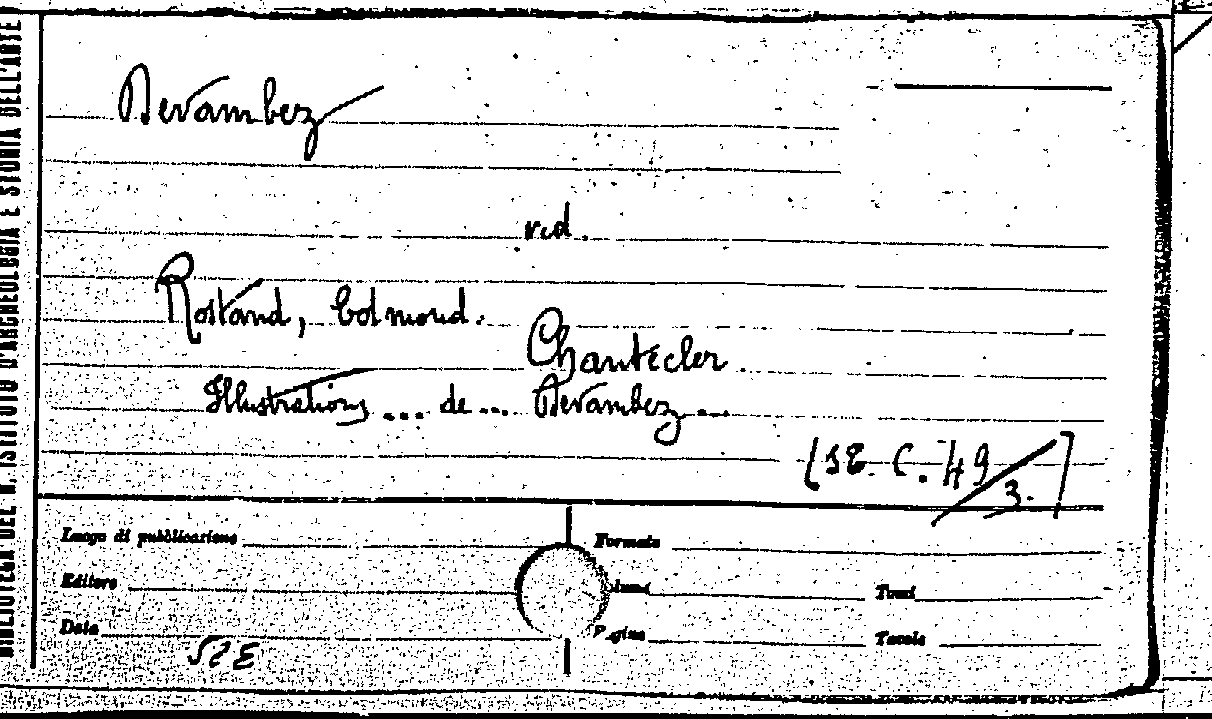 BIBLIOTECA DEL R. ISTITUTO D'ARCHEOLOGIA E STORIA DELL'ARTE
Devambez
ved.
Rostand, Edmond.
Chantecler.
Illustrations ... de ... Devambez ...
[SE. C. 49/3.]
Luogo di pubblicazione
Formato
Editore
Volumi
Tomi
Data
Pagine
Tavole